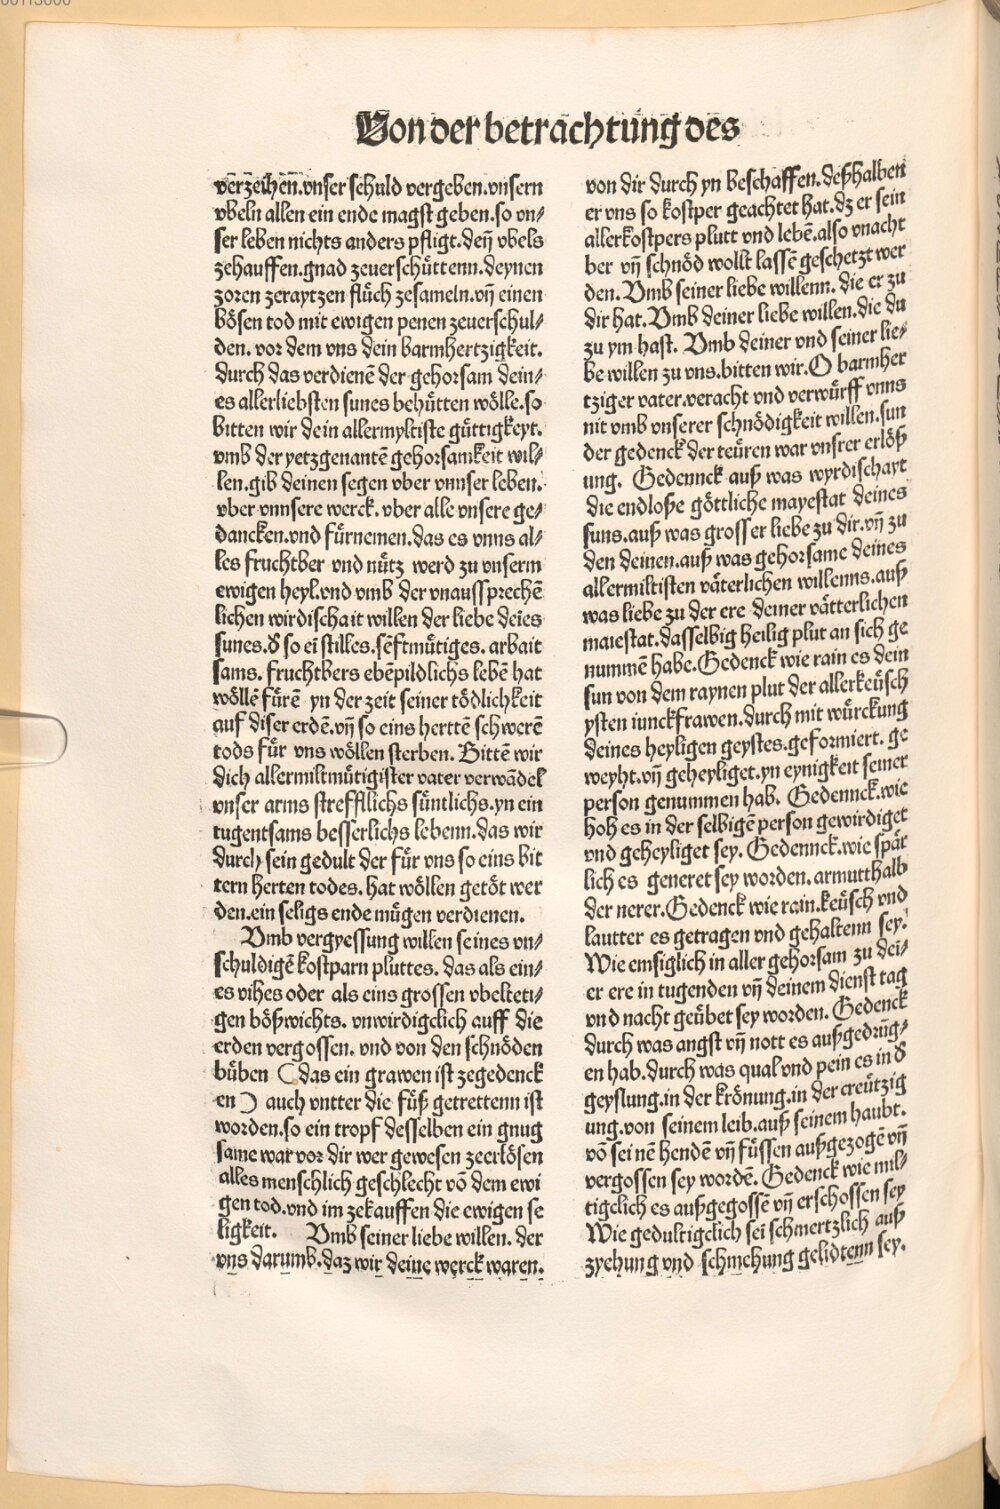 Von der betrachtung des
verzeihen.vnser schuld vergeben.vnsern
vbeln allen ein ende magst geben.so vn⸗
ser leben nichts anders pfligt.deñ vbels
zehauffen.gnad zeuerschüttenn.deynen
zoren zeraytzen flüch zesameln.vñ einen
bösen tod mit ewigen penen zeuerschul⸗
den. vor dem vns dein barmhertzigkeit.
durch das verdienē der gehorsam dein⸗
es allerliebsten sunes behütten wölle.so
bitten wir dein allermyltiste güttigkeyt.
vmb der yetzgenantē gehorsamkeit wil⸗
len.gib deinen segen vber vnnser leben.
vber vnnsere werck.vber alle vnsere ge⸗
dancken.vnd fürnemen.das es vnns al⸗
les fruchtber vnd nütz werd zu vnserm
ewigen heyl.vnd vmb der vnaussprechē
lichen wirdischait willen der liebe deīes
sunes.d̕ so eī stilles.sēftmütiges. arbait
sams. fruchtbers ebēpildlichs lebē hat
wöllē fürē yn der zeit seiner tödlichkeit
auf diser erdē.vñ so eins herttē schwerē
tods für vns wöllen sterben. Bittē wir
dich allermiltmütigister vater verwādel
vnser arms strefflichs süntlichs.yn ein
tugentsams besserlichs lebenn.das wir
durch sein gedult der für vns so eins bit
tern herten todes. hat wöllen getöt wer
den.ein seligs ende mügen verdienen.
Vmb vergyessung willen seines vn⸗
schuldigē kostparn pluttes. das als ein⸗
es vihes oder als eins grossen vbelteti⸗
gen bößwichts. vnwirdigclich auff die
erden vergossen. vnd von den schnöden
büben (das ein grawen ist zegedenck
en) auch vntter die füß getrettenn ist
worden.so ein tropf desselben ein gnug
same war vor dir wer gewesen zeerlösen
alles menschlich geschlecht vō dem ewi
gen tod.vnd im zekauffen die ewigen se
ligkeit. Vmb seiner liebe willen. der
vns darumb.daz wir deine werck waren.
von dir durch yn beschaffen.deßhalben
er vns so kostper geachtet hat.dz er sein
allerkostpers plutt vnd lebē.also vnacht
ber vñ schnöd wollt lassē geschetzt wer
den. Vmb seiner liebe willenn. die er zu
dir hat. Vmb deiner liebe willen.die du
zu ym hast. Vmb deiner vnd seiner lie⸗
be willen zu vns.bitten wir. O barmher
tziger vater.veracht vnd verwürff vnns
nit vmb vnserer schnödigkeit willen.sun
der gedenck der teüren war vnsrer erlöß
ung. Gedennck auß was wyrdischayt
die endloße göttliche mayestat deines
suns.auß was grosser liebe zu dir.vñ zu
den deinen.auß was gehorsame deines
allermiltisten väterlichen willenns.auß
was liebe zu der ere deiner vätterlichen
maiestat.dasselbig heilig plut an sich ge
nummē habe.Gedenck wie rain es dein
sun von dem raynen plut der allerkeüsch
ysten iunckfrawen.durch mit würckung
deines heyligen geystes.geformiert. ge
weyht.vñ geheyliget.yn eynigkeit seiner
person genummen hab. Gedennck.wie
hoh es in der selbigē person gewirdiget
vnd geheyliget sey. Gedennck.wie spät
lich es generet sey worden. armutthalb
der nerer.Gedenck wie rain.keüsch vnd
lautter es getragen vnd gehaltenn sey.
Wie emsiglich in aller gehorsam zu dei⸗
er ere in tugenden vñ deinem dienst tag
vnd nacht geübet sey worden. Gedenck
durch was angst vñ nott es außgedrūg⸗
en hab.durch was qual vnd pein es in d̕
geyslung.in der krönung.in der creützig
ung.von seinem leib.auß seinem haubt.
vō seinē hendē vñ füssen außgezogē vñ
vergossen sey wordē. Gedenck wie mil⸗
tigclich es außgegossē vñ erschossen sey
Wie gedultigclich sei schmertzlich auß
zyehung vnd schmehung gelidtenn sey.